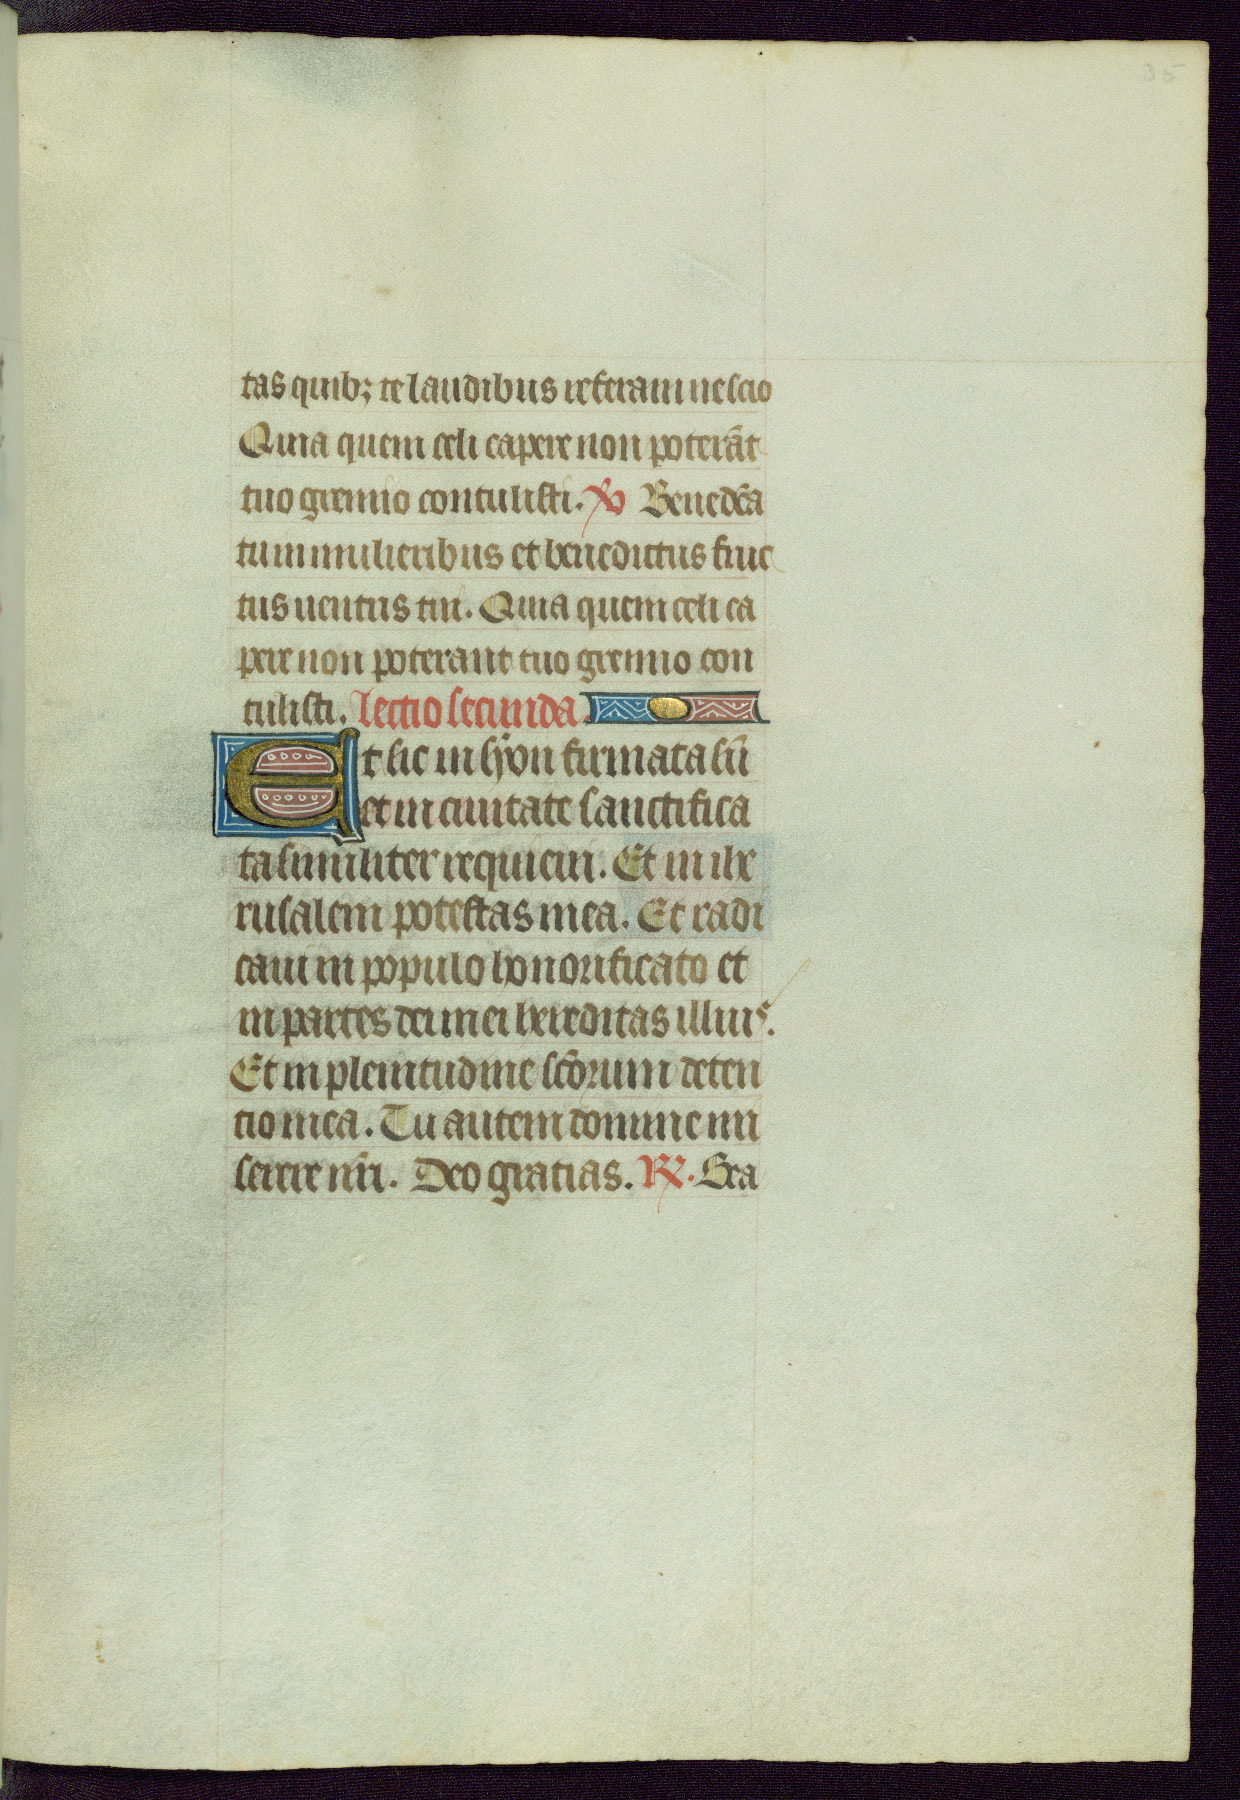 35
tas quibꝫ te laudibus referam nescio
Quia quem celi capere non poterāt
tuo gremio contulisti. ℣ Bened̄ca
tu in mulieribus et benedictus fruc
tus uentus tui. Quia quem celi ca
pere non poterant tuo gremio con
tulisti. Lectio secunda.
Et sic in syon firmata sū
et in ciuitate sanctifica
ta similiter requieui. Et in ihe
rusalem potestas mea. Et radi
caui in populo honorificato et
in partes dei mei hereditas illius.
Et in plenitudine sc̄orum deten
tio mea. Tu autem domine mi
serere nr̄i. Deo gratias. ℟. Bea